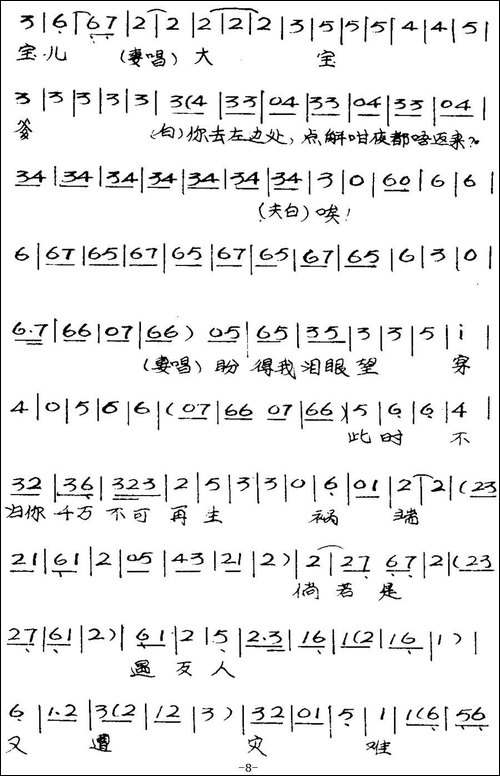 3|6|67|2|2|2|2|2|3|5|5|5|4|4|5|
宝儿 (妻唱) 大 宝
3|3|3|3|3|3(4|33|04|33|04|33|04|
爹 (白)你去左边处,点解咁夜都唔返来?
34|34|34|34|34|34|34|3|0|60|6|6|
(夫白)唉!
6|67|65|67|65|67|65|67|65|6|3|0|
6.7|66|07|66) 05|65|35|3|3|5|i|
(妻唱) 盼 得我泪眼望 穿
4|0|5|6|6|(07|66 07|66)|5|6|6|4|
此时 不
32|36|323|2|5|3|3|0|6|01|2|2|(23
归你 千万 不可再生 祸 端
21|61|2|05|43|21|2)|2|27 67|2|(23
倘若是
27|61|2) 61|2|5|2.3|16|1(2|16|1)|
遇歹人
6|1.2|3(2|12|3)|32|01|5|1|1(6|56
又 遭 灾 难
-8-